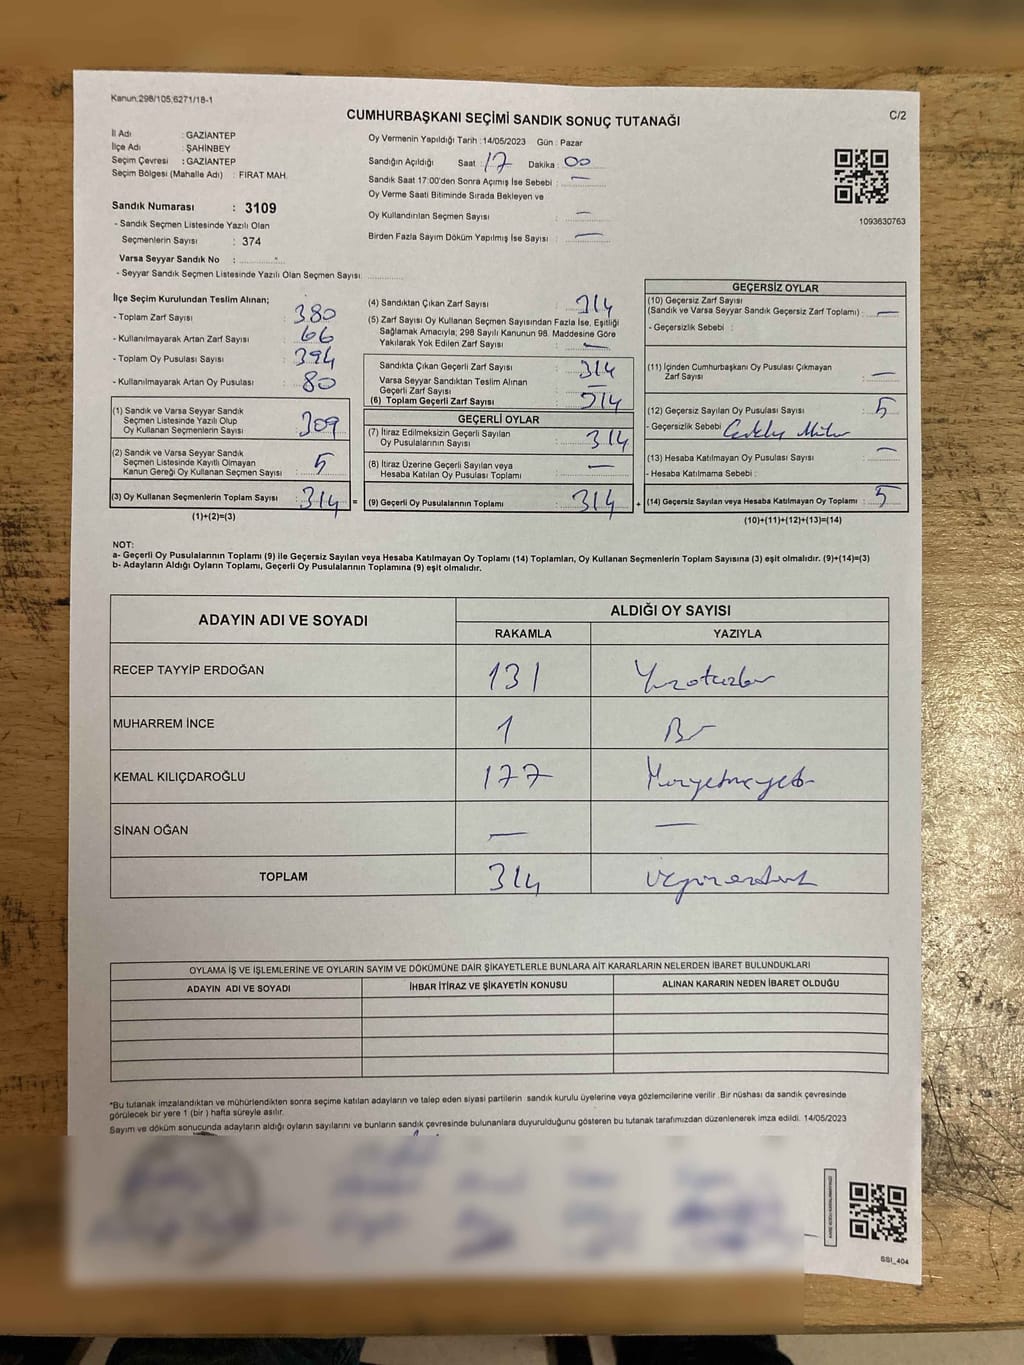 Kanun:298/105;6271/18-1
CUMHURBAŞKANI SEÇİMİ SANDIK SONUÇ TUTANAĞI
C/2
İl Adı : GAZİANTEP
İlçe Adı : ŞAHİNBEY
Seçim Çevresi : GAZİANTEP
Seçim Bölgesi (Mahalle Adı) : FIRAT MAH.
Sandık Numarası : 3109
- Sandık Seçmen Listesinde Yazılı Olan
Seçmenlerin Sayısı : 374
Varsa Seyyar Sandık No :
- Seyyar Sandık Seçmen Listesinde Yazılı Olan Seçmen Sayısı:
Oy Vermenin Yapıldığı Tarih :14/05/2023 Gün : Pazar
Sandığın Açıldığı Saat : 17 Dakika : 00
Sandık Saat 17:00'den Sonra Açımış İse Sebebi : —
Oy Verme Saati Bitiminde Sırada Bekleyen ve
Oy Kullandırılan Seçmen Sayısı : —
Birden Fazla Sayım Döküm Yapılmış İse Sayısı : —
1093630763
İlçe Seçim Kurulundan Teslim Alınan;
- Toplam Zarf Sayısı : 380
- Kullanılmayarak Artan Zarf Sayısı : 66
- Toplam Oy Pusulası Sayısı : 394
- Kullanılmayarak Artan Oy Pusulası : 80
(1) Sandık ve Varsa Seyyar Sandık
Seçmen Listesinde Yazılı Olup
Oy Kullanan Seçmenlerin Sayısı : 309
(2) Sandık ve Varsa Seyyar Sandık
Seçmen Listesinde Kayıtlı Olmayan
Kanun Gereği Oy Kullanan Seçmen Sayısı : 5
(3) Oy Kullanan Seçmenlerin Toplam Sayısı : 314 =
(1)+(2)=(3)
(4) Sandıktan Çıkan Zarf Sayısı : 314
(5) Zarf Sayısı Oy Kullanan Seçmen Sayısından Fazla İse, Eşitliği
Sağlamak Amacıyla; 298 Sayılı Kanunun 98. Maddesine Göre
Yakılarak Yok Edilen Zarf Sayısı : —
Sandıkta Çıkan Geçerli Zarf Sayısı : 314
Varsa Seyyar Sandıktan Teslim Alınan
Geçerli Zarf Sayısı : —
(6) Toplam Geçerli Zarf Sayısı : 314
GEÇERLİ OYLAR
(7) İtiraz Edilmeksizin Geçerli Sayılan
Oy Pusulalarının Sayısı : 314
(8) İtiraz Üzerine Geçerli Sayılan veya
Hesaba Katılan Oy Pusulası Toplamı : —
(9) Geçerli Oy Pusulalarının Toplamı : 314 +
GEÇERSİZ OYLAR
(10) Geçersiz Zarf Sayısı
(Sandık ve Varsa Seyyar Sandık Geçersiz Zarf Toplamı) : —
- Geçersizlik Sebebi :
(11) İçinden Cumhurbaşkanı Oy Pusulası Çıkmayan
Zarf Sayısı : —
(12) Geçersiz Sayılan Oy Pusulası Sayısı : 5
- Geçersizlik Sebebi
(13) Hesaba Katılmayan Oy Pusulası Sayısı : —
- Hesaba Katılmama Sebebi :
(14) Geçersiz Sayılan veya Hesaba Katılmayan Oy Toplamı : 5
(10)+(11)+(12)+(13)=(14)
NOT:
a- Geçerli Oy Pusulalarının Toplamı (9) ile Geçersiz Sayılan veya Hesaba Katılmayan Oy Toplamı (14) Toplamları, Oy Kullanan Seçmenlerin Toplam Sayısına (3) eşit olmalıdır. (9)+(14)=(3)
b- Adayların Aldığı Oyların Toplamı, Geçerli Oy Pusulalarının Toplamına (9) eşit olmalıdır.
ADAYIN ADI VE SOYADI
ALDIĞI OY SAYISI
RAKAMLA YAZIYLA
RECEP TAYYİP ERDOĞAN 131
MUHARREM İNCE 1 Bir
KEMAL KILIÇDAROĞLU 177
SİNAN OĞAN — —
TOPLAM 314
OYLAMA İŞ VE İŞLEMLERİNE VE OYLARIN SAYIM VE DÖKÜMÜNE DAİR ŞİKAYETLERLE BUNLARA AİT KARARLARIN NELERDEN İBARET BULUNDUKLARI
ADAYIN ADI VE SOYADI İHBAR İTİRAZ VE ŞİKAYETİN KONUSU ALINAN KARARIN NEDEN İBARET OLDUĞU
*Bu tutanak imzalandıktan ve mühürlendikten sonra seçime katılan adayların ve talep eden siyasi partilerin sandık kurulu üyelerine veya gözlemcilerine verilir .Bir nüshası da sandık çevresinde
görülecek bir yere 1 (bir ) hafta süreyle asılır.
Sayım ve döküm sonucunda adayların aldığı oyların sayılarını ve bunların sandık çevresinde bulunanlara duyurulduğunu gösteren bu tutanak tarafımızdan düzenlenerek imza edildi. 14/05/2023
SSI_404